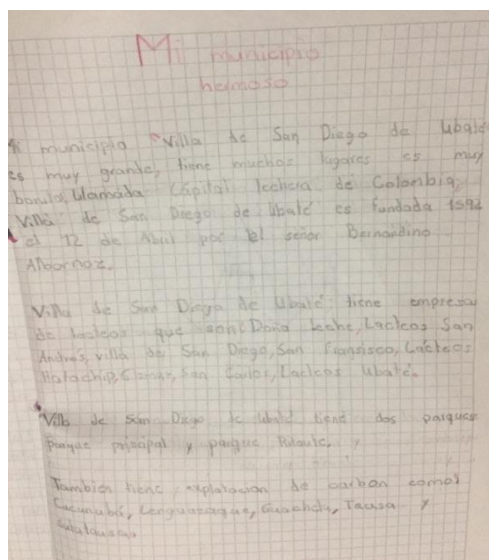 Mi municipio
hermoso
municipio "Villa de San Diego de Ubaté
es muy grande, tiene muchos lugares es muy
bonito, llamada Capital lechera de Colombia,
Villa de San Diego de Ubaté es fundada 1592
el 12 de Abril por el señor Bernardino
Albornoz.
Villa de San Diego de Ubaté tiene empresas
de lacteos que son: Doña leche, Lacteos San
Andrés, villa de San Diego, San Fransisco, Lácteos
San Carlos, Lacteos Ubaté.
Villa de San Diego de Ubaté tiene dos parques
parque principal y parque
También tiene explotacion de carbon como:
Cucunubá, Lenguazaque, Guachetá, Tausa y
Sutatausa